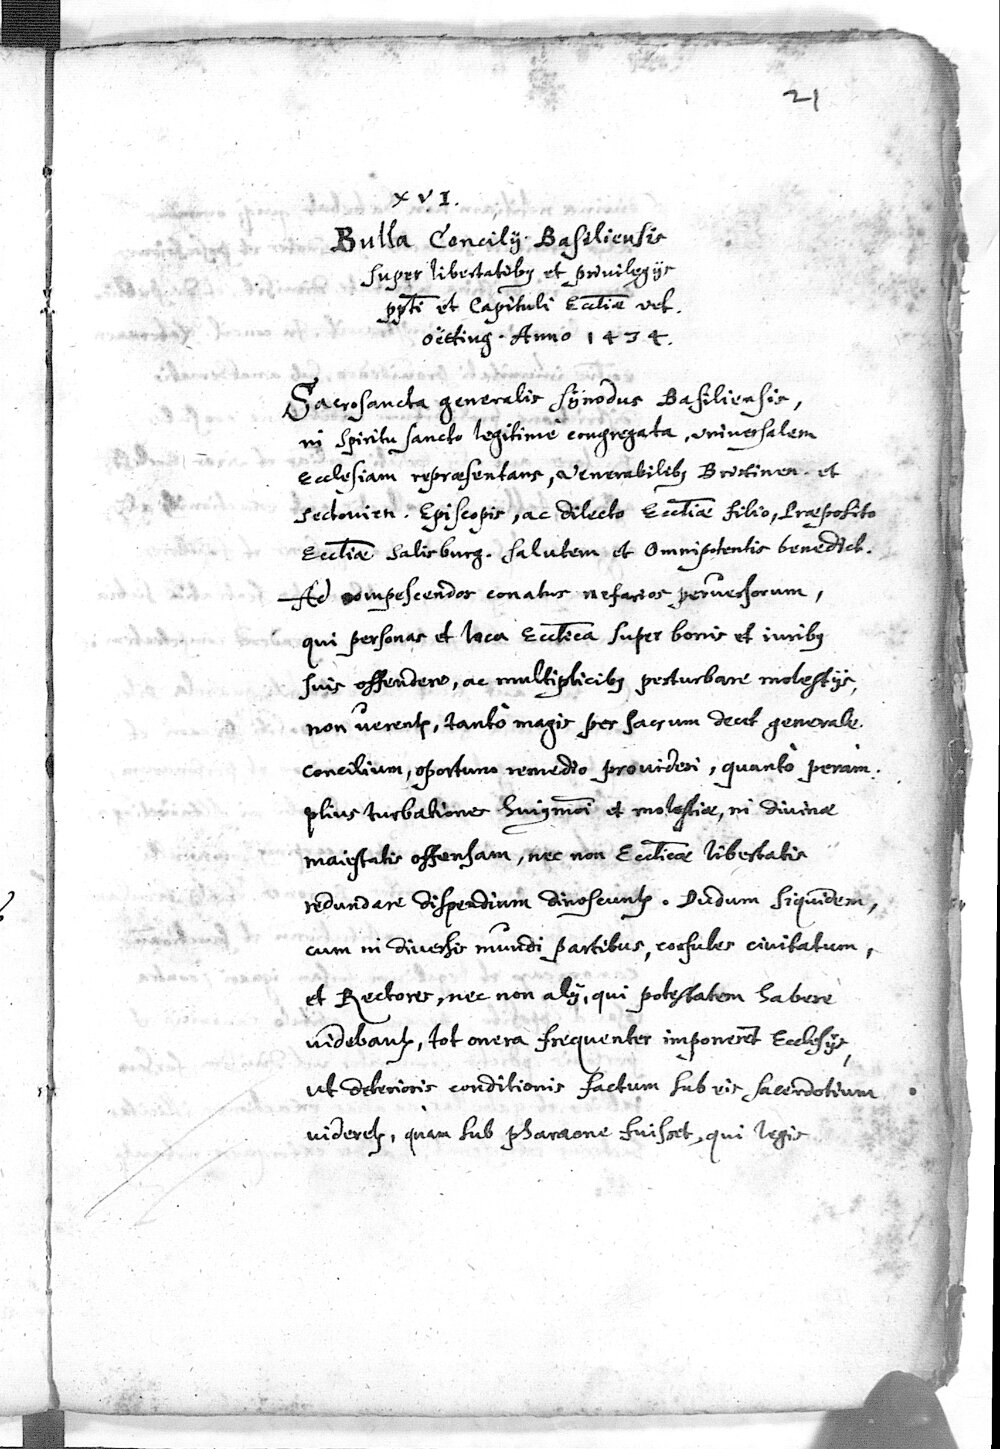 21
XVI.
Bulla Concilÿ Basiliensis
super libertatibus et privilegÿs
ppti et Capituli Eccliæ vet.
öetting. Anno 1434.
Sacrosancta generalis sÿnodus Basiliensis,
in spiritu sancto legitimè congregata, vniversalem
Ecclesiam repræsentans, Venerabilibus Brixinen. et
Seccovien. Episcopis, ac dilecto Eccliæ filio, Præposito
Eccliæ Salisburg. salutem et Omnipotentis benedict.
Ad compescendos conatus nefarios perversorum,
qui personas et loca Ecclica super bonis et iuribus
suis offendere, ac multiplicibus perturbare molestÿs,
non verentur, tantò magis per sacrum decet generale
concilium, oportuno remedio provideri, quantò peram:
plius turbationes huiusmoi et molestiæ, in divinæ
maiestatis offensam, nec non Ecclicæ libertatis
redundare dispendium dinoscuntur. Dudum siquidem,
cum in diversis mundi partibus, consules civitatum,
et Rectores, nec non alÿ, qui potestatem habere
videbantur, tot onera frequenter imponerent Ecclesÿs,
ut deterioris conditionis factum sub eis sacerdotium
videretur, quàm sub pharaone fuisset, qui legis